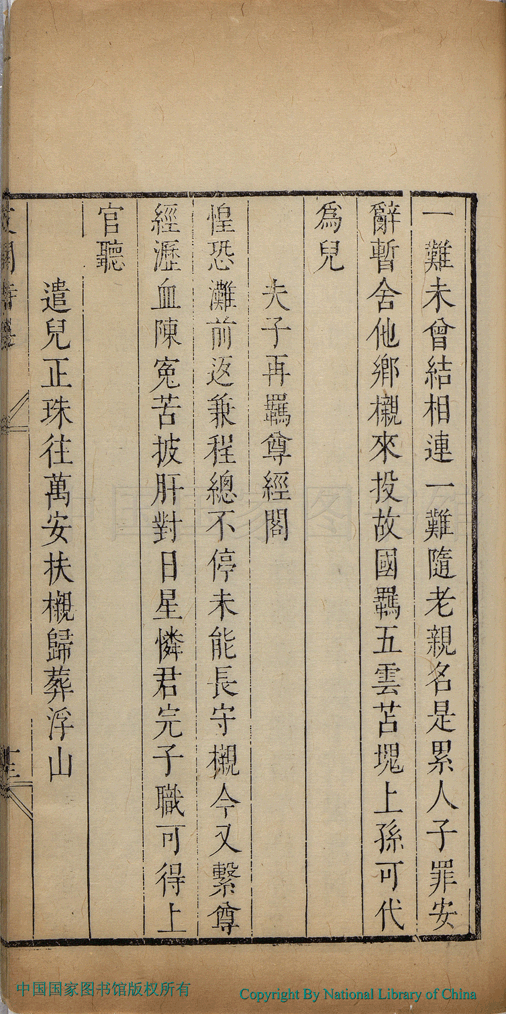 一難未曾結相連一難隨老親名是累人子罪安
辭暫舍他鄉櫬來投故國羈五雲苫塊上孫可代
為兒
夫子再羈尊經閣
惶恐灘前返兼程總不停未能長守櫬今又繫尊
經瀝血陳冤苦披肝對日星憐君完子職可得上
官聽
遣兒正珠往萬安扶櫬歸葬浮山
中国国家图书馆版权所有
Copyright By National Library of China